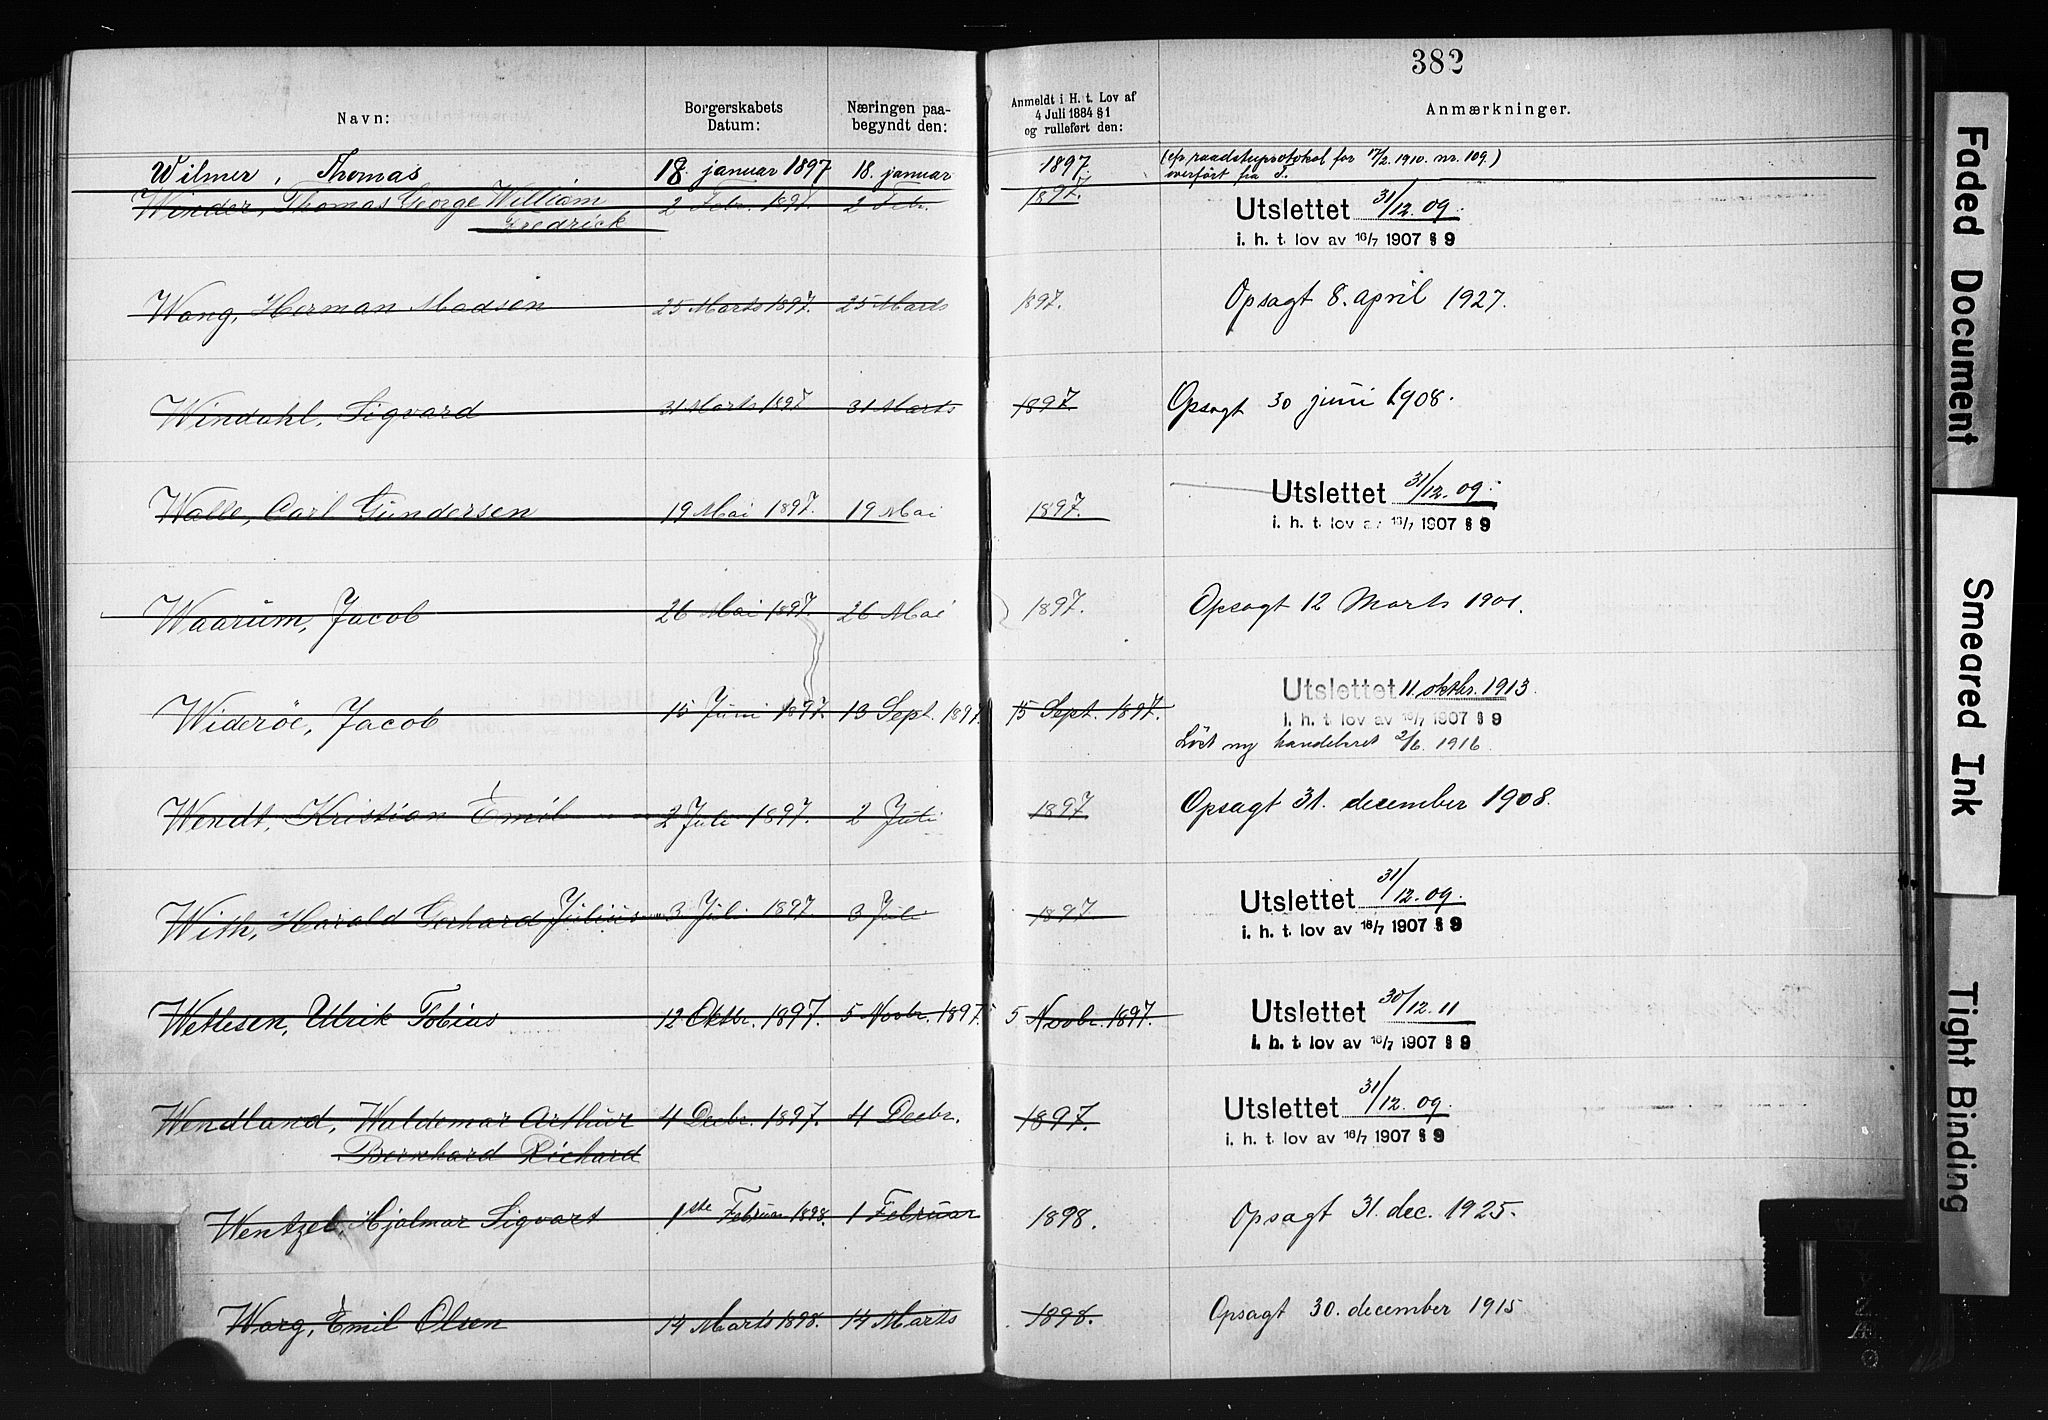 382
Navn: Borgerskabets Datum: Næringen paabegyndt den: Anmeldt i H. t. Lov af 4 Juli 1884 § 1 og rulleført den: Anmærkninger.
Wilmer, Thomas 18. januar 1897 18. januar 1897. (cfr. raadstuprotokol for 17/2. 1910. nr. 109.)
overført fra I.
Winder, Thomas George William 2 Febr. 1897. 2 Febr. 1897. Utslettet 31/12. 09.
Fredrick i. h. t. lov av 16/7 1907 § 9
Wang, Herman Madsen 25 Marts 1897. 25 Marts 1897. Opsagt 8. april 1927.
Windahl, Sigvard 31 Marts 1897 31 Marts 1897 Opsagt 30 juni 1908.
Walle, Carl Gundersen 19 Mai 1897. 19 Mai 1897. Utslettet 31/12. 09.
i. h. t. lov av 16/7 1907 § 9
Waarum, Jacob 26 Mai 1897. 26 Mai 1897. Opsagt 12 Marts 1901.
Wideröe, Jacob 15 Juni 1897. 13 Sept. 1897. 15 Sept. 1897. Utslettet 11 oktbr. 1913.
i. h. t. lov av 16/7 1907 § 9
Löst ny handelsret 2/6. 1916.
Wendt, Kristian Emil 2 Juli 1897. 2 Juli 1897 Opsagt 31. december 1908.
With, Harald Gerhard Julius 3 Juli 1897. 3 Juli 1897 Utslettet 31/12. 09.
i. h. t. lov av 16/7 1907 § 9
Wetlesen, Ulrik Tobias 12 Oktbr. 1897. 5 Novbr. 1897. 5 Novbr. 1897. Utslettet 30/12. 11
i. h. t. lov av 16/7 1907 § 9
Wendland, Waldemar Arthur 4 Decbr. 1897. 4 Decbr. 1897. Utslettet 31/12. 09.
Bernhard Richard i. h. t. lov av 16/7 1907 § 9
Wentzel, Hjalmar Sigvart 1ste Februar 1898. 1 Februar 1898. Opsagt 31. dec. 1925.
Warg, Emil Olsen 14 Marts 1898. 14 Marts 1898. Opsagt 30. december 1915
Faded Document
Smeared Ink
Tight Binding